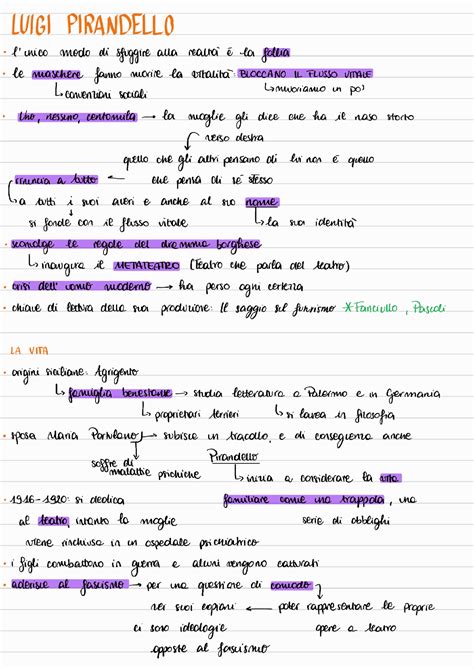 LUIGI PIRANDELLO
• l'unico modo di sfuggire alla realtà è la follia
• le maschere fanno morire la vitalità: BLOCCANO IL FLUSSO VITALE
↳ convenzioni sociali ↳ moriamo un po'
• Uno, nessuno, centomila → la moglie gli dice che ha il naso storto
↙ verso destra
quello che gli altri pensano di lui non è quello
rinuncia a tutto ← che pensa di sé stesso
↳ a tutti i suoi averi e anche al suo nome
si fonde con il flusso vitale ↳ la sua identità
• sconvolge le regole del dramma borghese
↳ inaugura il METATEATRO (Teatro che parla del teatro)
• crisi dell'uomo moderno → ha perso ogni certezza
• chiave di lettura della sua produzione: Il saggio sul *Fanciullo, Pascoli
LA VITA
• origini siciliane: Agrigento
↳ famiglia benestante → studia letteratura a Palermo e in Germania
↳ proprietari terrieri ↳ si laurea in filosofia
• sposa Maria Portulano → subisce un tracollo, e di conseguenza anche
soffre di Pirandello
malattie psichiche ↳ inizia a considerare la vita
• 1916-1920: si dedica familiare come una trappola, una
al teatro, intanto la moglie serie di obblighi
viene rinchiusa in un ospedale psichiatrico
• i figli combattono in guerra e alcuni vengono catturati
• aderisce al fascismo → per una questione di comodo
nei suoi ← poter rappresentare le proprie
ci sono ideologie opere a teatro
opposte al fascismo